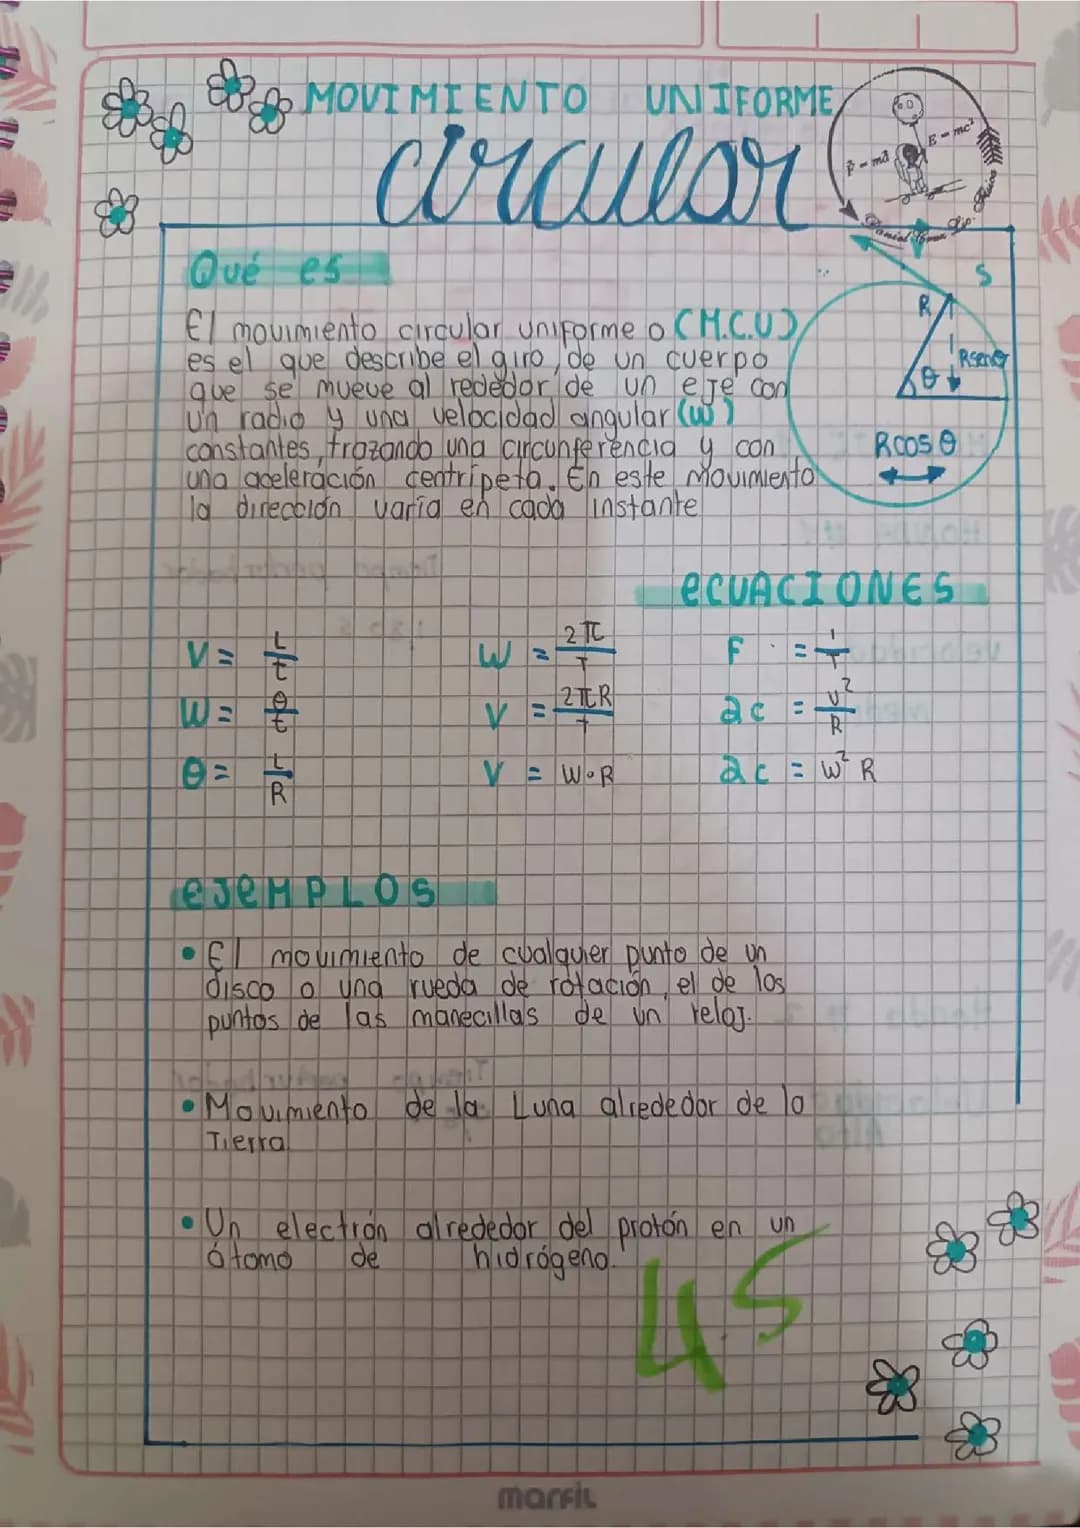 MOVIMIENTO UNIFORME
circular
E=mc²
Qué es
El movimiento circular uniforme o (M.C.U)
es el que describe el giro, de un cuerpo
que se mueve al rededor de un eje con
un radio y una velocidad angular (w)
constantes, trazando una circunferencia y con
una aceleración centrípeta. En este movimiento
la dirección varía en cada instante
S
R
Rsenθ
θ
Rcosθ
ECUACIONES
V = L/t w = 2π/T F = 1/T
W = θ/t V = 2πR/T ac = v²/R
θ = L/R V = W·R ac = w² R
EJEMPLOS
• El movimiento de cualquier punto de un
disco o una rueda de rotación, el de los
puntos de las manecillas de un reloj.
• Movimiento de la Luna alrededor de la
Tierra
• Un electrón alrededor del protón en un
átomo de hidrógeno.
4.5
marfil